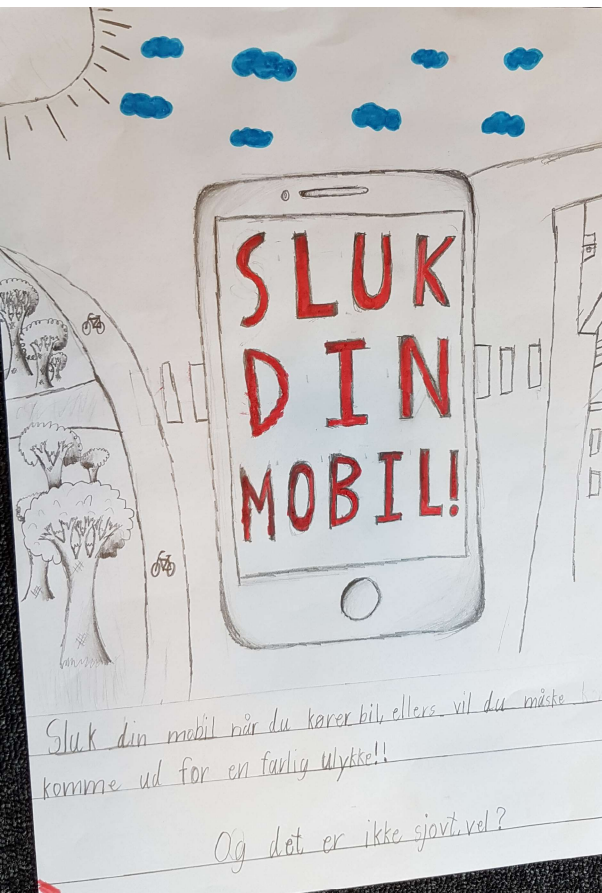 SLUK
DIN
MOBIL!
Sluk din mobil når du kører bil, ellers vil du måske
komme ud for en farlig ulykke!!
Og det er ikke sjovt, vel?